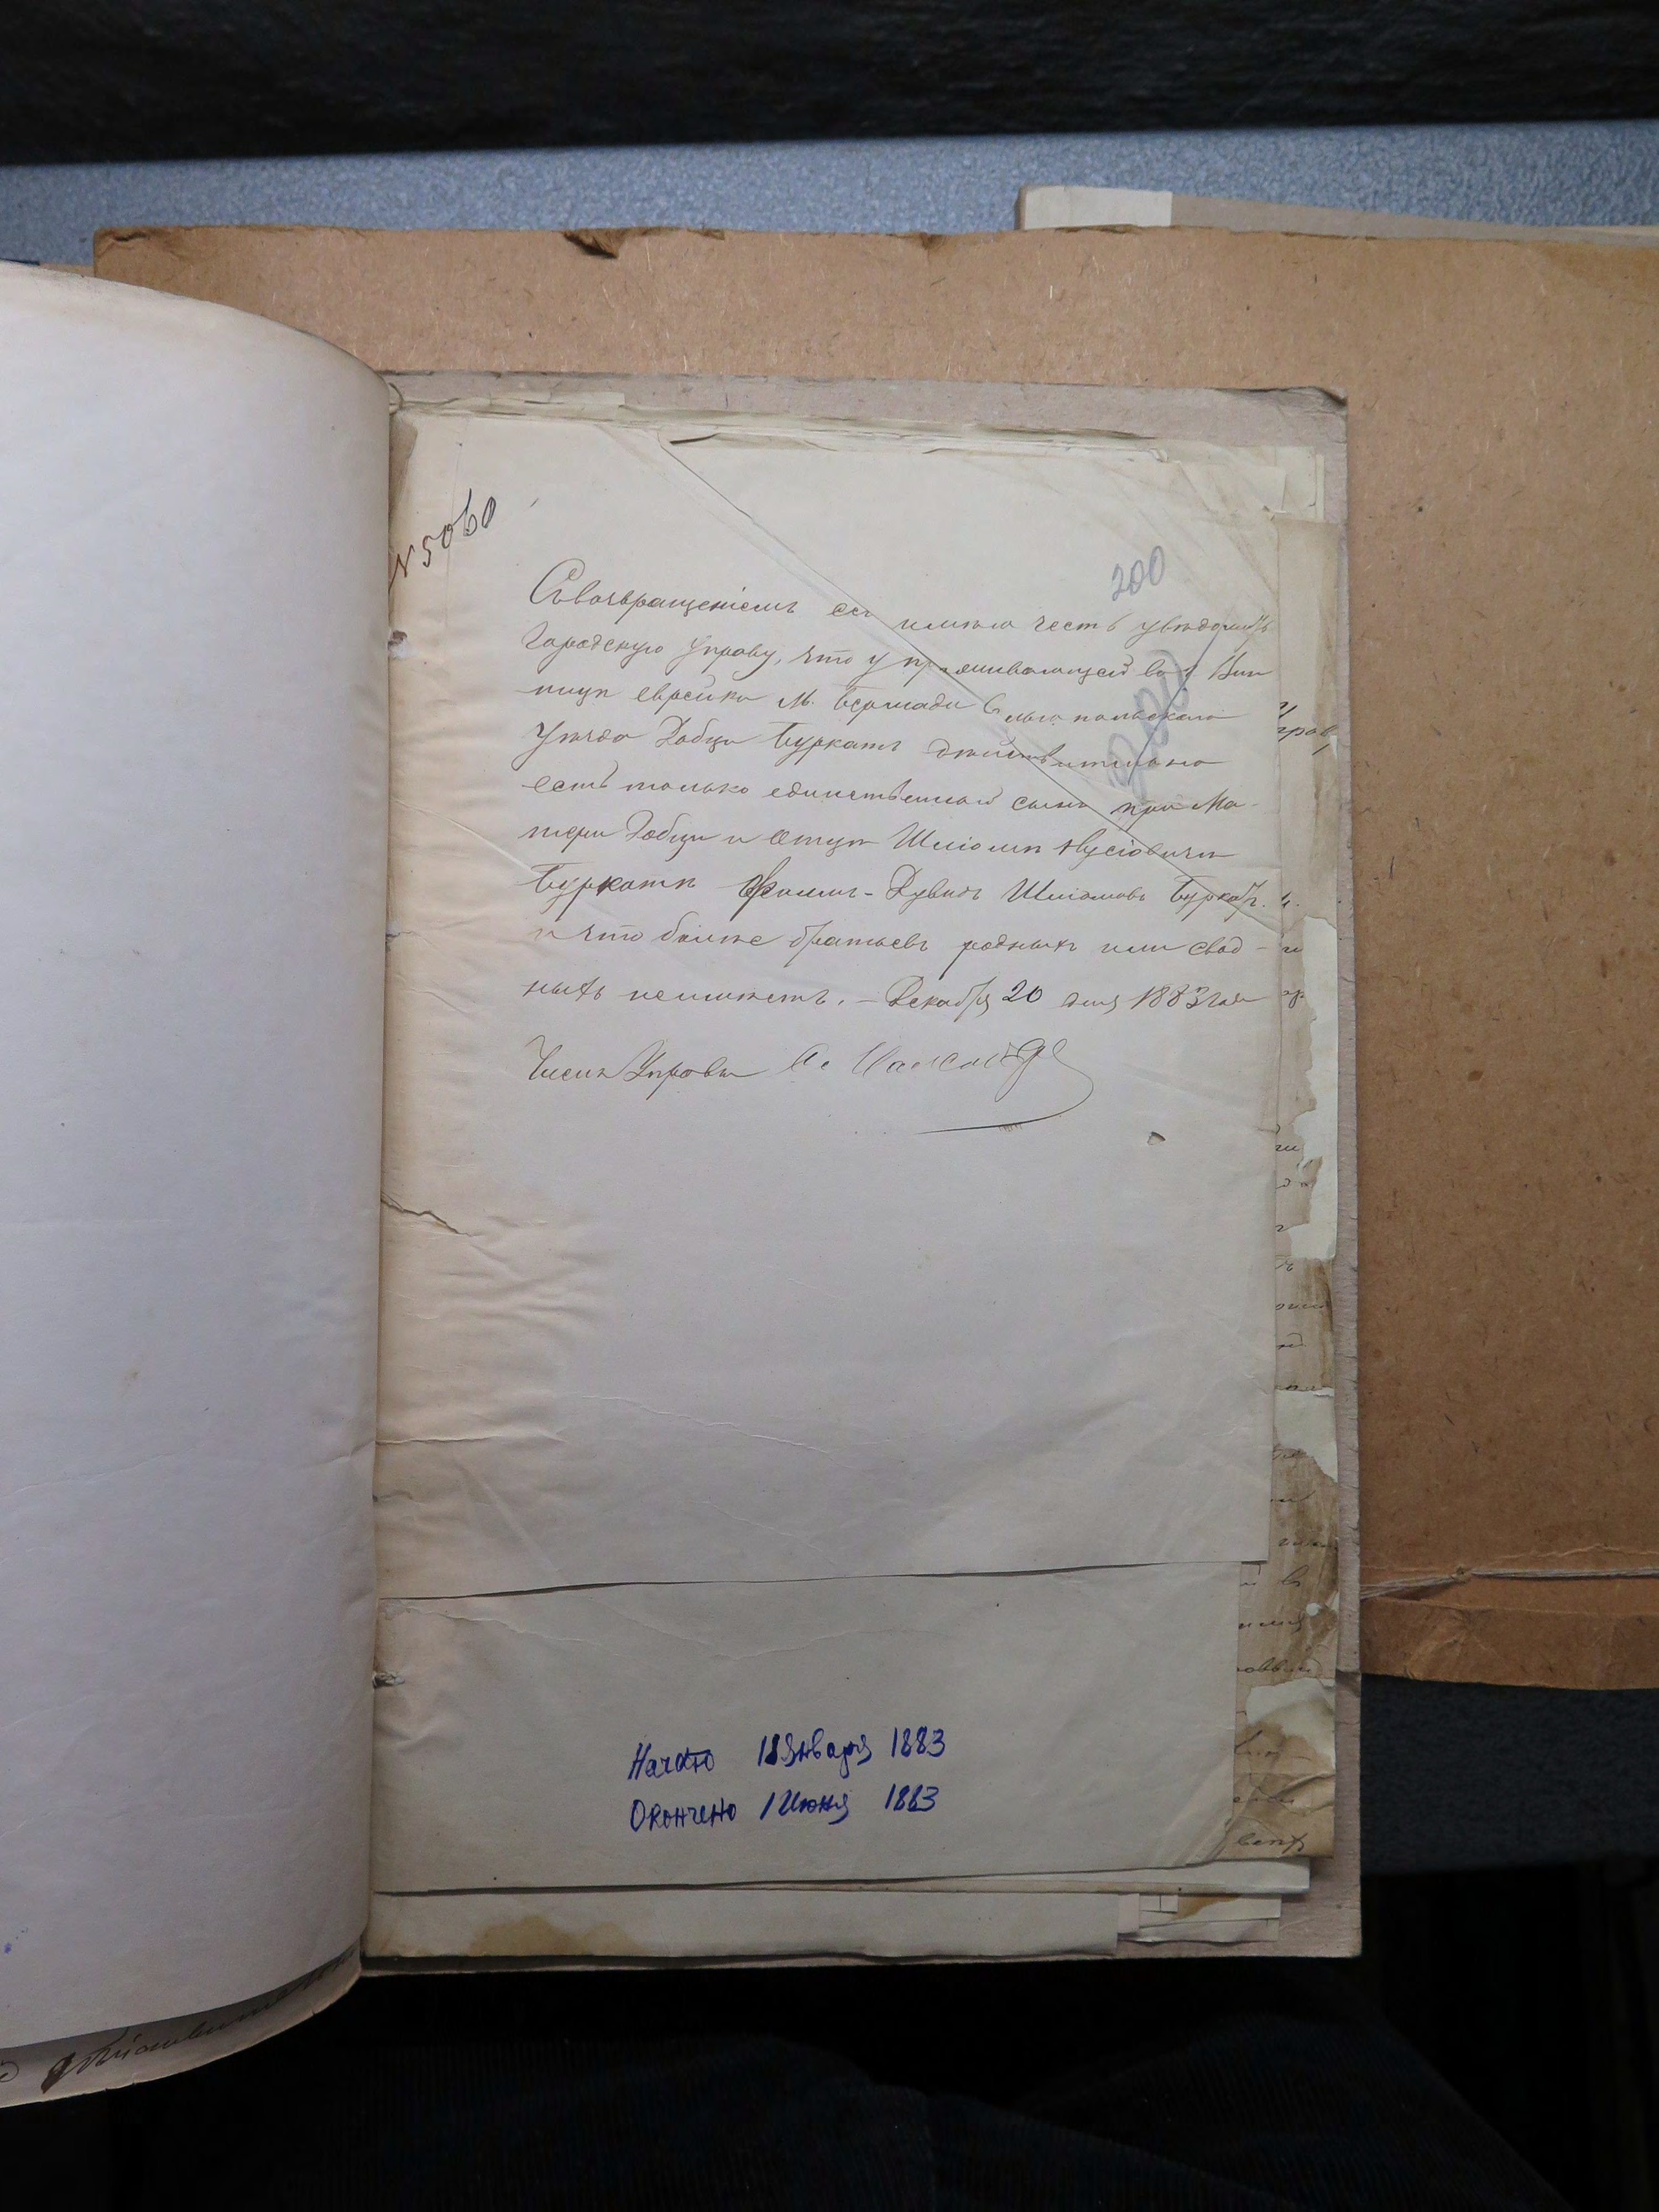 № 5060
200
Съ возвращеніемъ сего имѣю честь увѣдомить
Городскую Управу, что у проживающей въ г. Вин
ницѣ еврейки м. Бершади Ольгопольскаго
Уѣзда Добци Буркатъ дѣйствительно
есть только единственный сынъ при Ма-
тери Добци и Отцѣ Шліомѣ
Буркатѣ Дувидъ Шліомовъ Буркатъ.
и что болѣе братьевъ родныхъ или свод-
ныхъ неимѣетъ. - Декабря 20 дня 1883 года
Членъ Управы
Начато 18 Января 1883
Окончено 1 Июня 1883